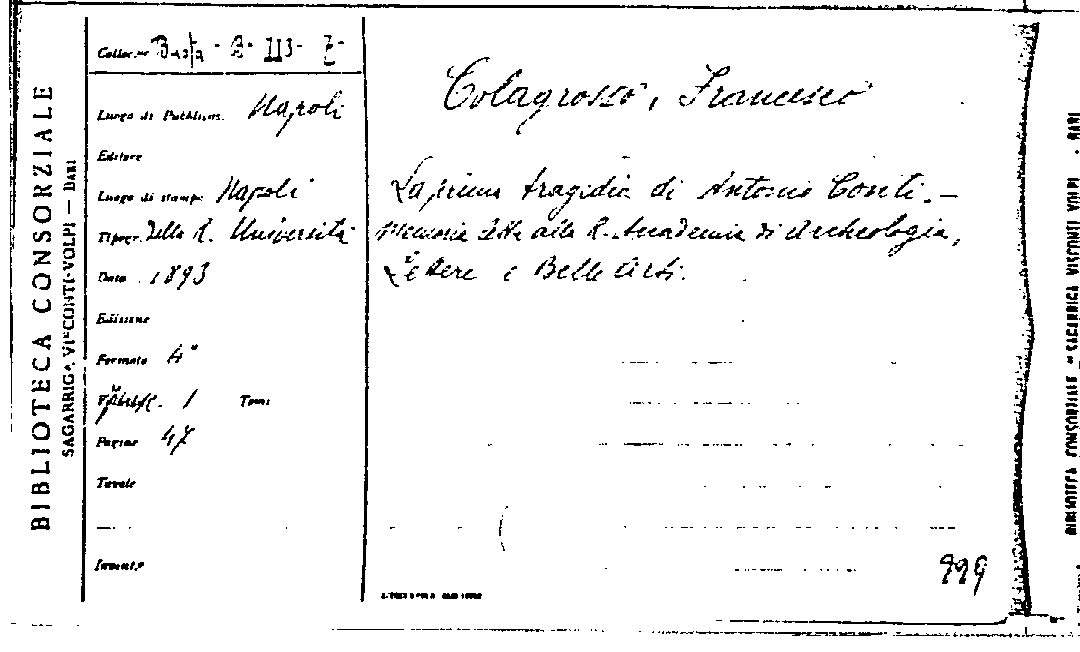 BIBLIOTECA CONSORZIALE
SAGARRIGA VISCONTI-VOLPI — BARI
Colloc.ne Busta - B- III-
Luogo di Pubblicaz. Napoli
Editore
Luogo di stampa Napoli
Tipogr. della R. Università
Data 1893
Edizione
Formato 4°
1 Tomi
Pagine 47
Tavole
Inventar.
Colagrosso, Francesco
La prima tragidia di Antonio Conti. —
Memoria letta alla R. Accademia di Archeologia,
Lettere e Belle Arti.
999
BIBLIOTECA CONSORZIALE "SAGARRIGA VISCONTI VOLPI - BARI